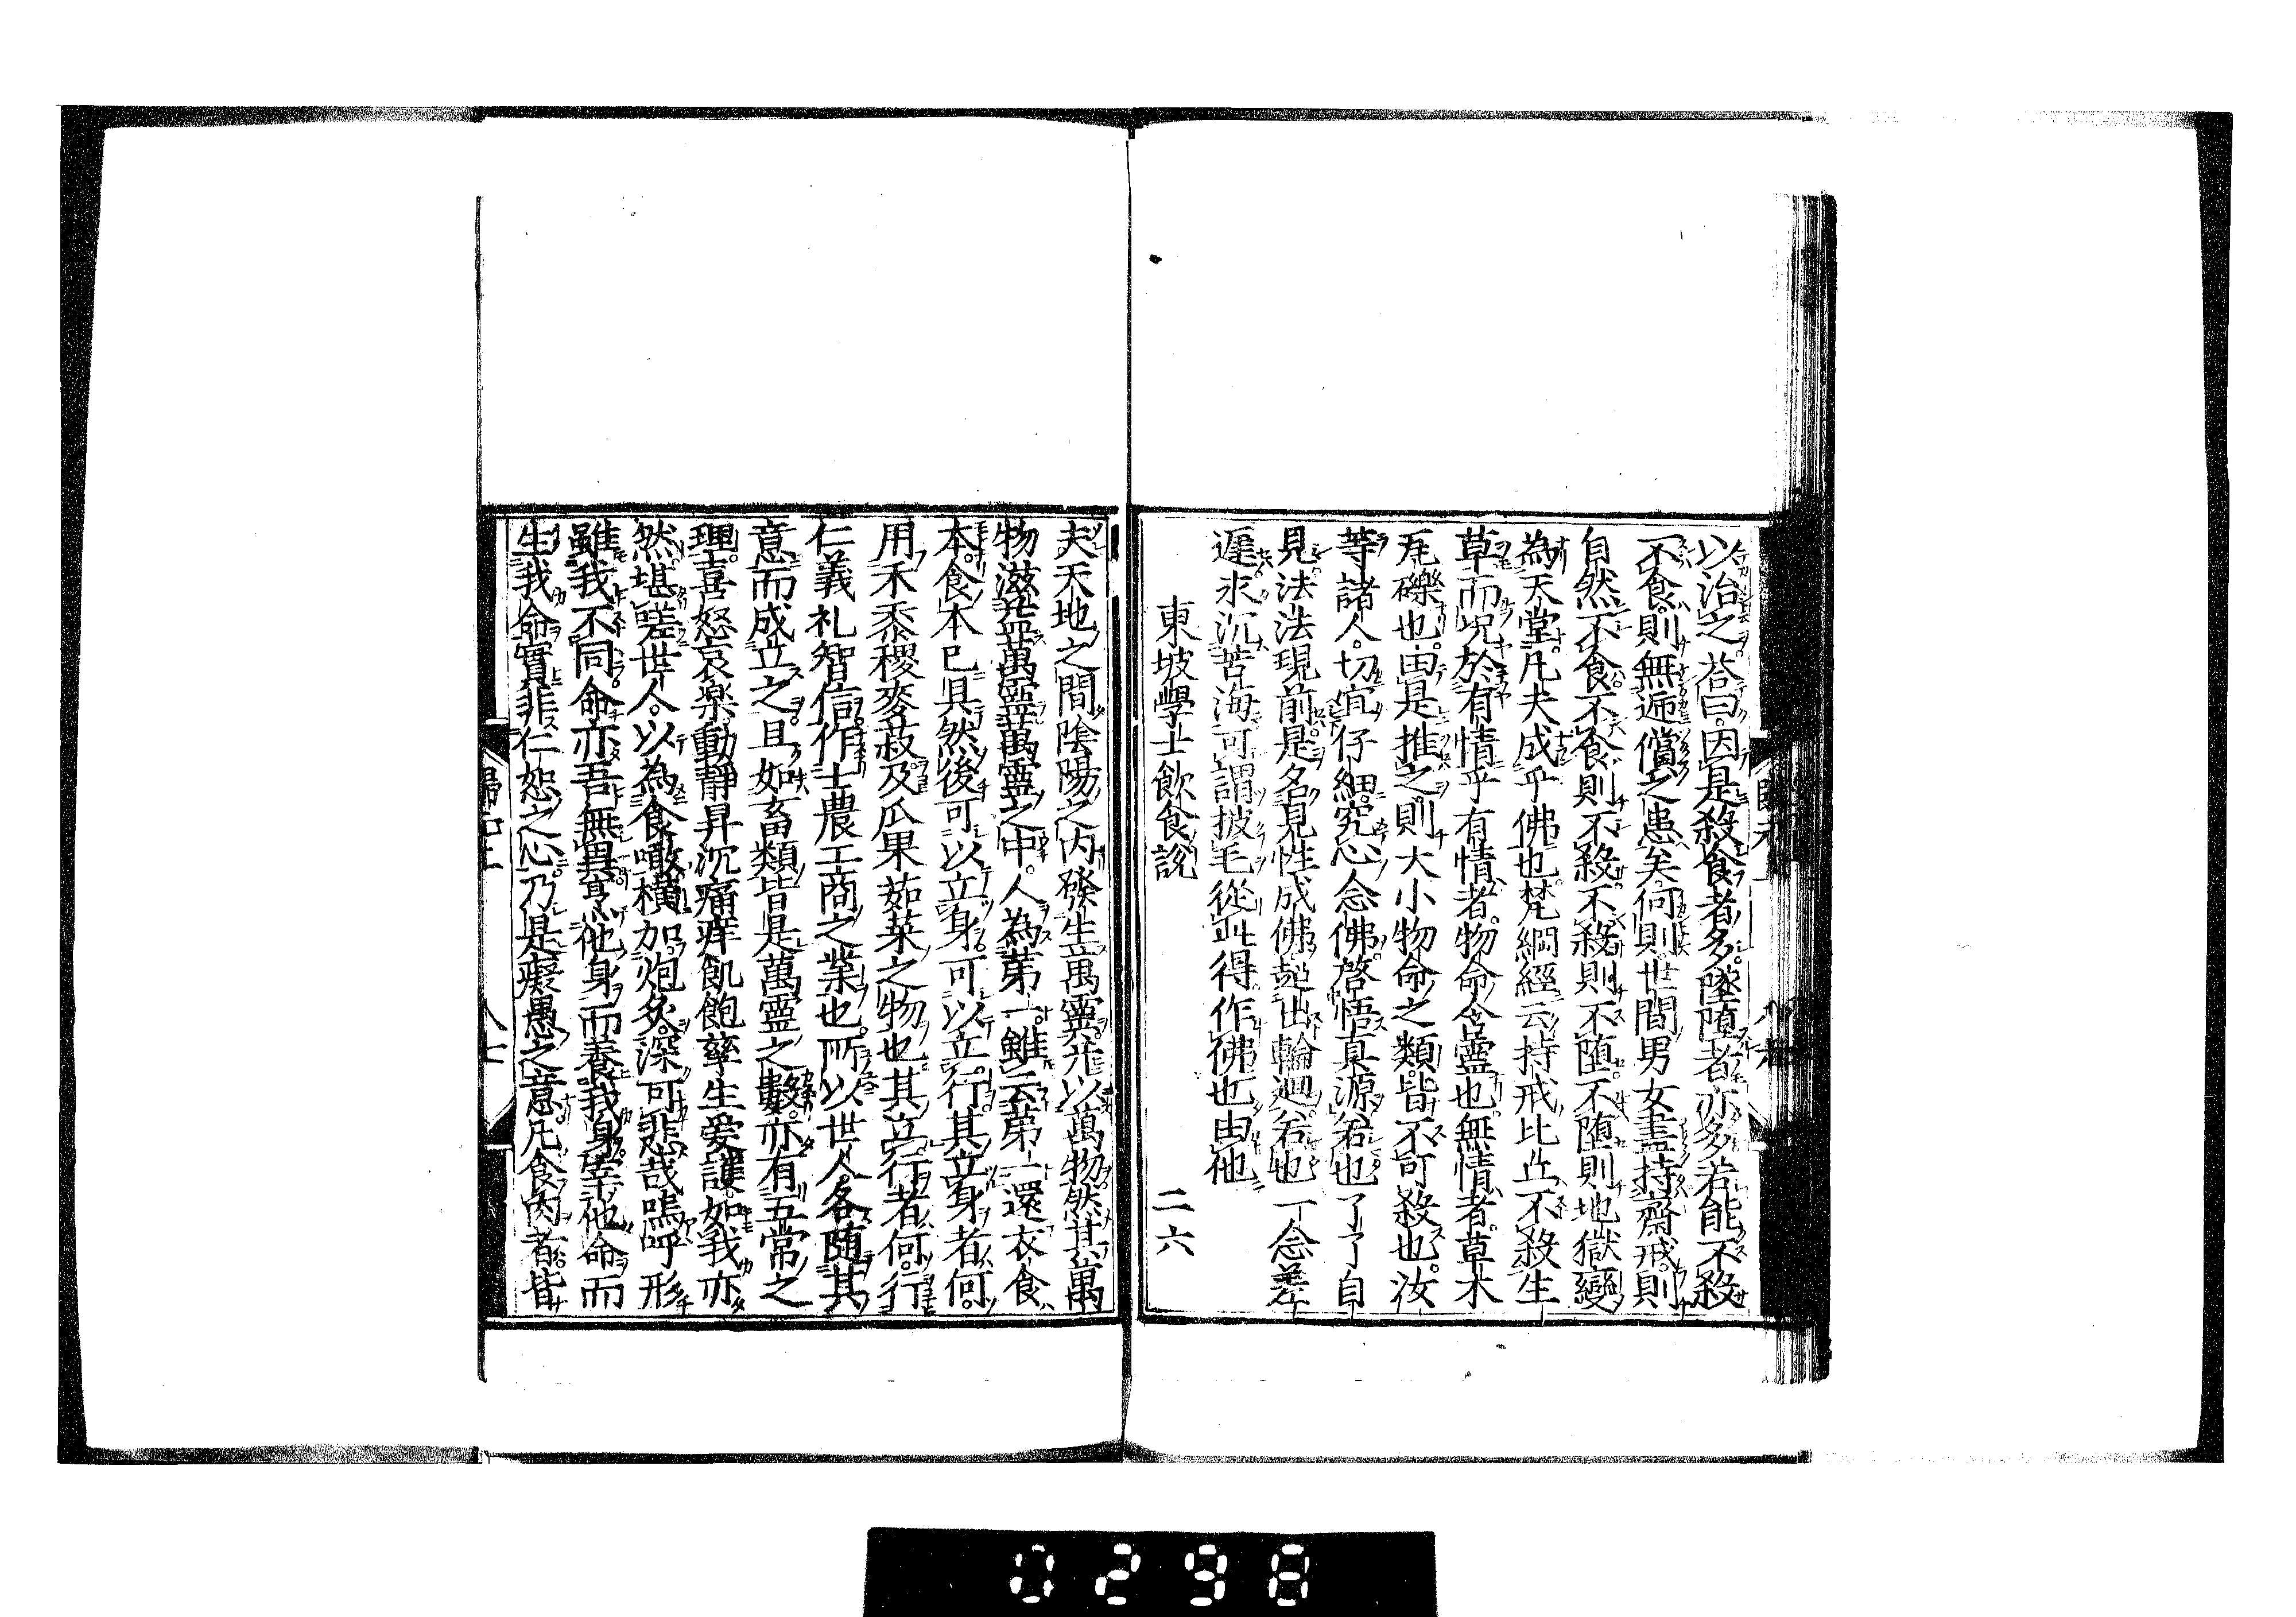 以治之荅曰因是殺食者多墜墮者亦多若能不殺
不食則無遍償之患矣何則世間男女盡持齋戒則
自然不食不食則不殺不殺則不堕不堕則地獄變
為天堂凡夫成乎佛也梵網經云持戒比丘不殺生
草而況於有情乎有情者物命含靈也無情者草木
瓦礫也由是推之則大小物命之類皆不可殺也汝
等諸人切宜仔細究心念佛啓悟真源若也了了自
見法法現前是名見性成佛超出輪迴若也一念差
遲永沉苦海可謂披毛從此得作佛也由他
東坡學士飲食說 二六
夫天地之間陰陽之内發生萬靈并以萬物然其萬
物滋益萬靈萬靈之中人為第一雖云第一還衣食
本食本已具然後可以立身可以立行其立身者何
用禾黍稷麥菽及瓜果茹菜之物也其立行者何行
仁義礼智信作士農工商之業也所以世人各随其
意而成立之且如畜類皆是萬靈之數亦有五常之
理喜怒哀樂動靜昇沉痛痒飢飽孳生愛護如我亦
然堪嗟世人以為食噉橫加炮炙深可悲哉嗚呼形
雖我不同命亦吾無異烹他身而養我身宰他命而
生我命實非仁恕之心乃是癡愚之意凡食肉者皆
0298